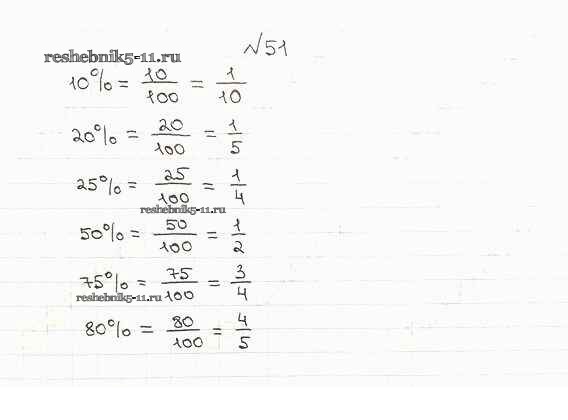 №51
reshebnik5-11.ru
10% = 10/100 = 1/10
20% = 20/100 = 1/5
25% = 25/100 = 1/4
reshebnik5-11.ru
50% = 50/100 = 1/2
75% = 75/100 = 3/4
reshebnik5-11.ru
80% = 80/100 = 4/5